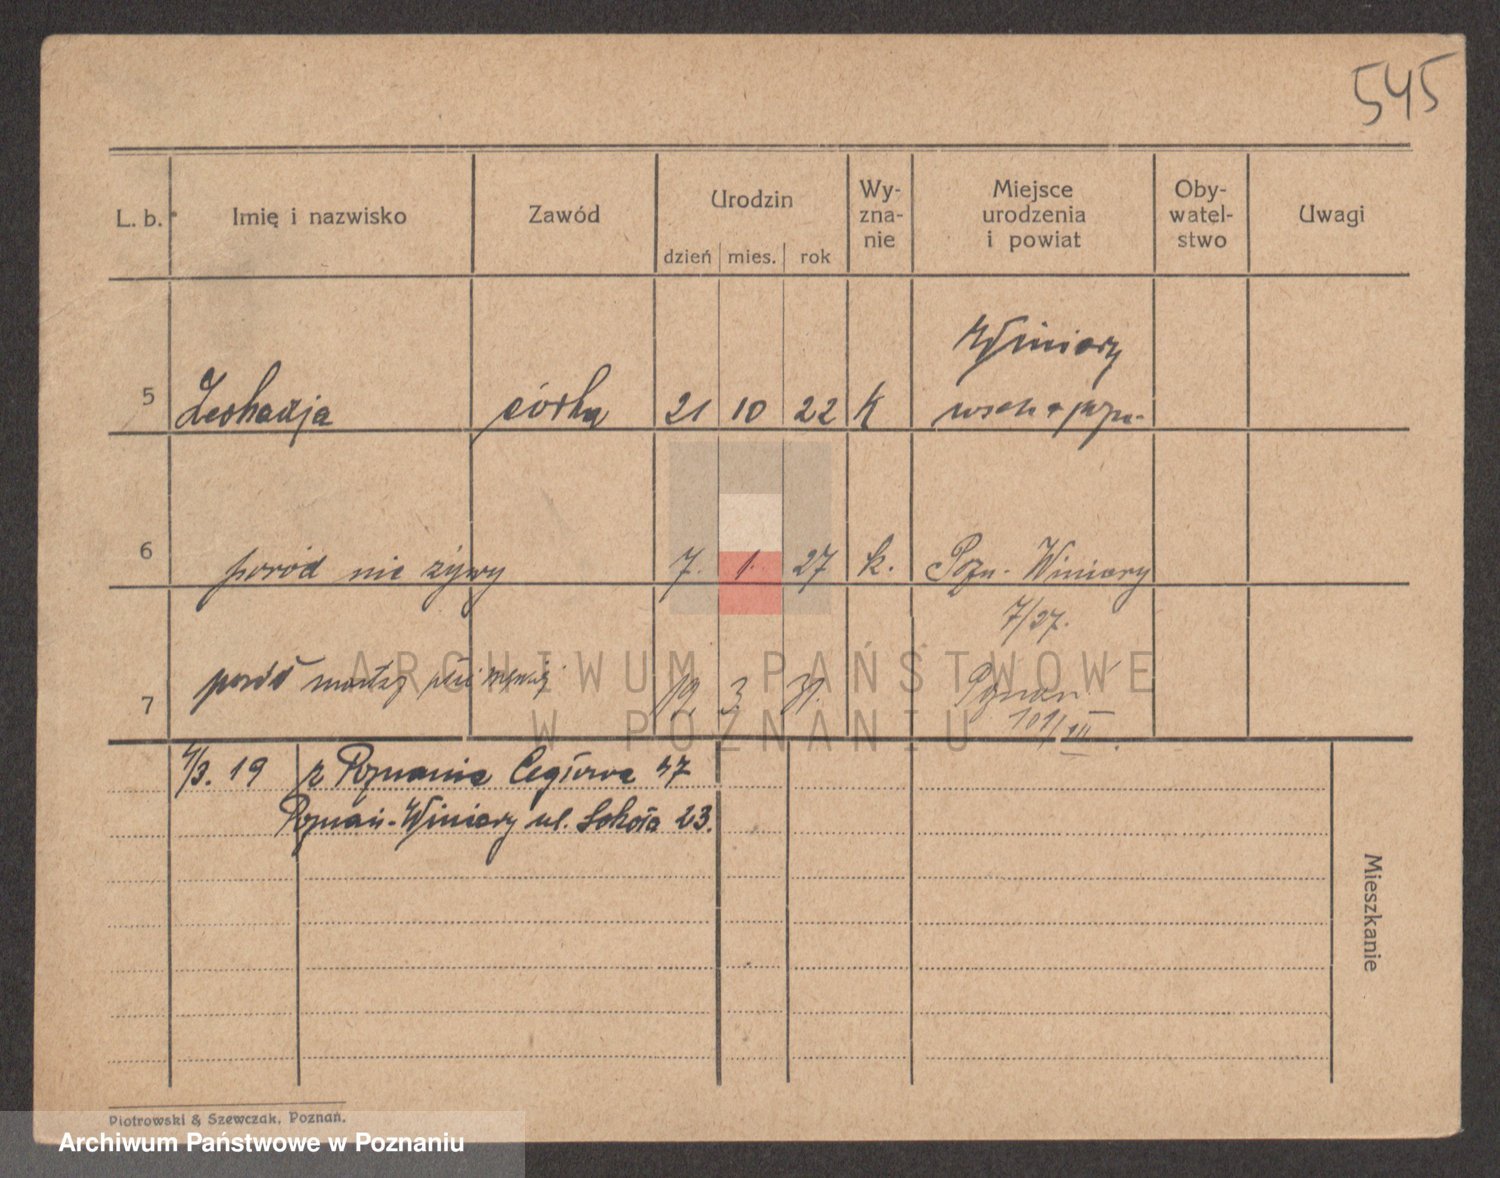 545
L. b. Imię i nazwisko Zawód Urodzin Wy-
zna-
nie Miejsce
urodzenia
i powiat Oby-
watel-
stwo Uwagi
dzień mies. rok
Winiary
5 Leokadja córka 21 10 22 K wsch + pozn.
6 poród nie żywy 7. 1. 27 k. Pozn. Winiary
7/27.
7 poród martwy płci męskiej 19. 3. 31. Poznań
101/III.
4/3. 19 z Poznania Ceglowa 47
Poznań-Winiary ul. Sokoła 23.
Mieszkanie
Piotrowski & Szewczak, Poznań.
ARCHIWUM PAŃSTWOWE
W POZNANIU
Archiwum Państwowe w Poznaniu